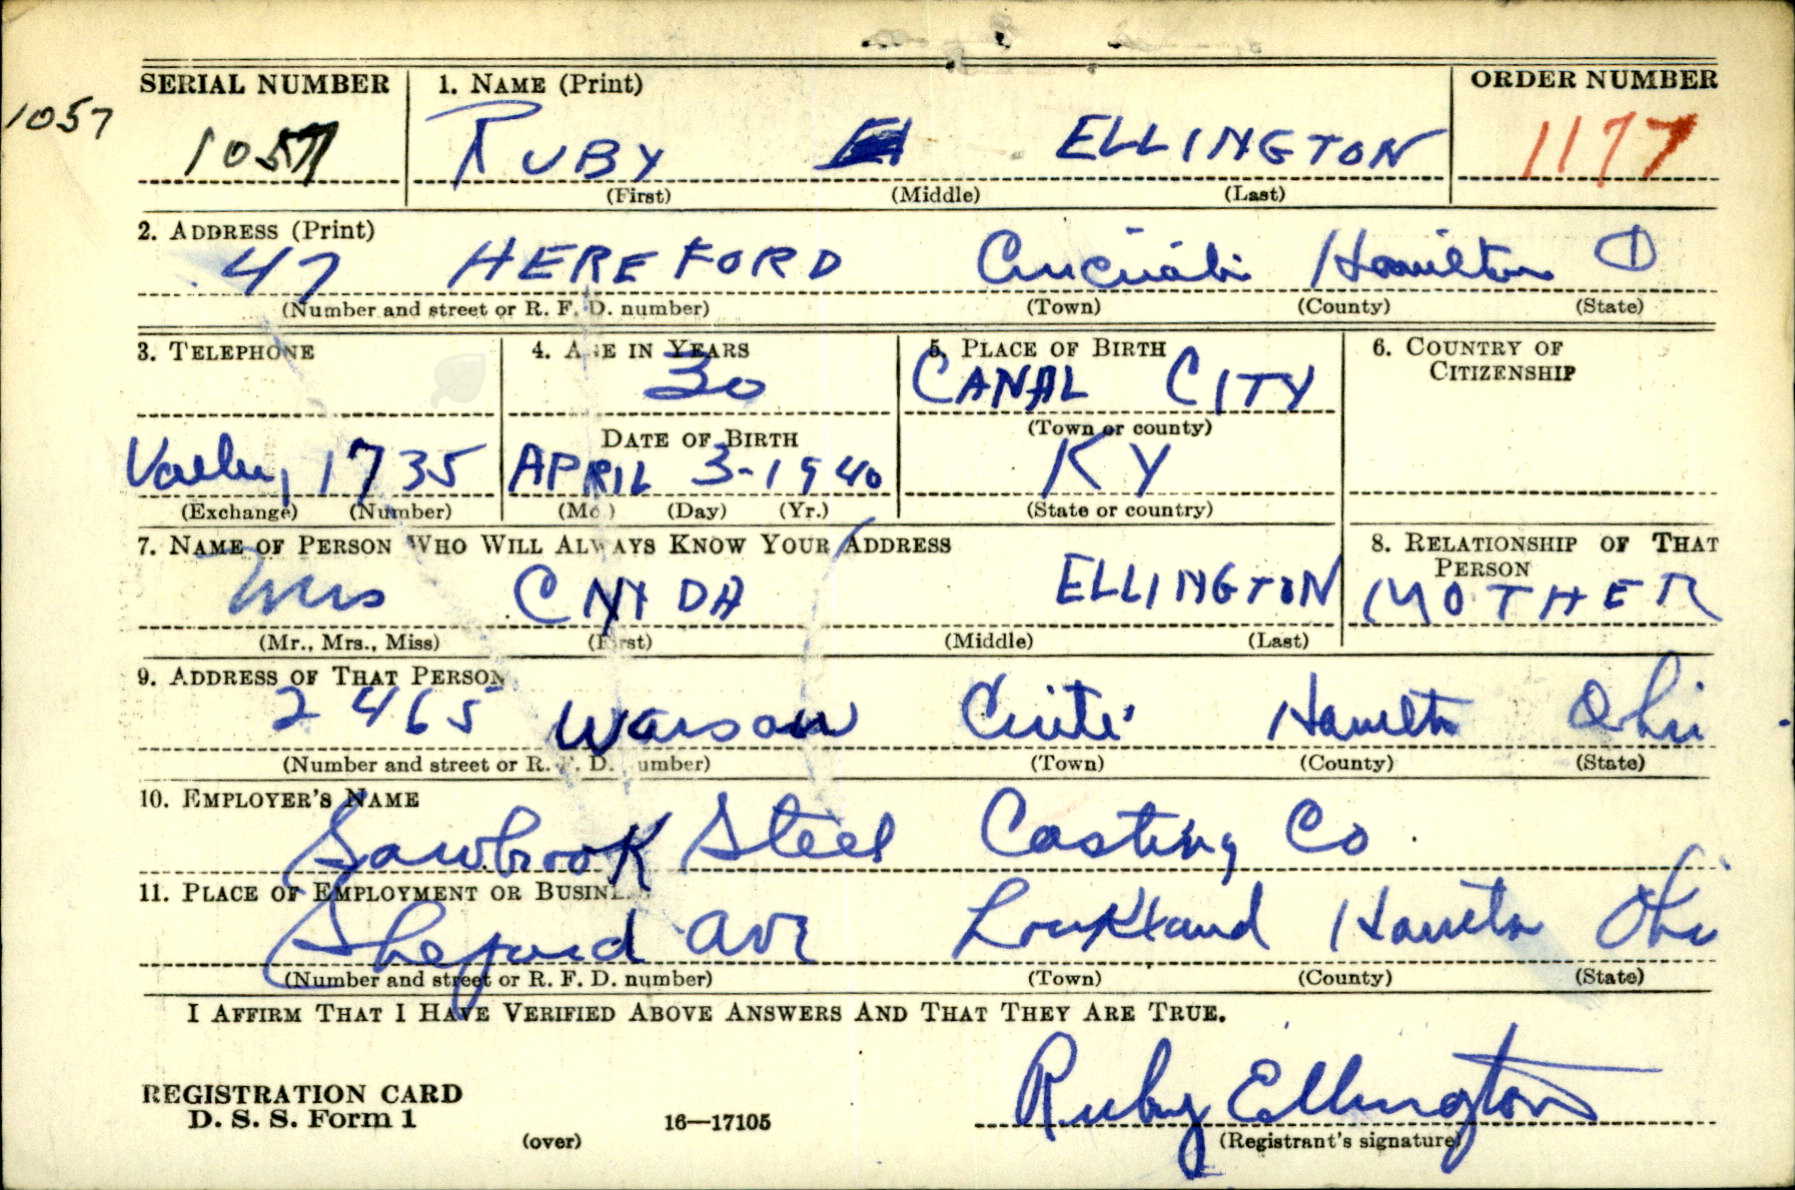 SERIAL NUMBER 1. NAME (Print) ORDER NUMBER
1057 1057 RUBY ELLINGTON 1177
(First) (Middle) (Last)
2. ADDRESS (Print)
47 HEREFORD Cincinnati Hamilton O
(Number and street or R. F. D. number) (Town) (County) (State)
3. TELEPHONE 4. AGE IN YEARS 5. PLACE OF BIRTH 6. COUNTRY OF CITIZENSHIP
30 CANAL CITY
DATE OF BIRTH (Town or county)
Valley 1735 APRIL 3-1940 KY
(Exchange) (Number) (Mo.) (Day) (Yr.) (State or country)
7. NAME OF PERSON WHO WILL ALWAYS KNOW YOUR ADDRESS 8. RELATIONSHIP OF THAT PERSON
Mrs ELLINGTON MOTHER
(Mr., Mrs., Miss) (First) (Middle) (Last)
9. ADDRESS OF THAT PERSON
2465 Cinti Hamilton Ohio
(Number and street or R. F. D. number) (Town) (County) (State)
10. EMPLOYER'S NAME
Sawbrook Steel Casting Co
11. PLACE OF EMPLOYMENT OR BUSINESS
Shepard ave Lockland Hamilton Ohio
(Number and street or R. F. D. number) (Town) (County) (State)
I AFFIRM THAT I HAVE VERIFIED ABOVE ANSWERS AND THAT THEY ARE TRUE.
REGISTRATION CARD
D. S. S. Form 1 16—17105 Ruby Ellington
(over) (Registrant's signature)